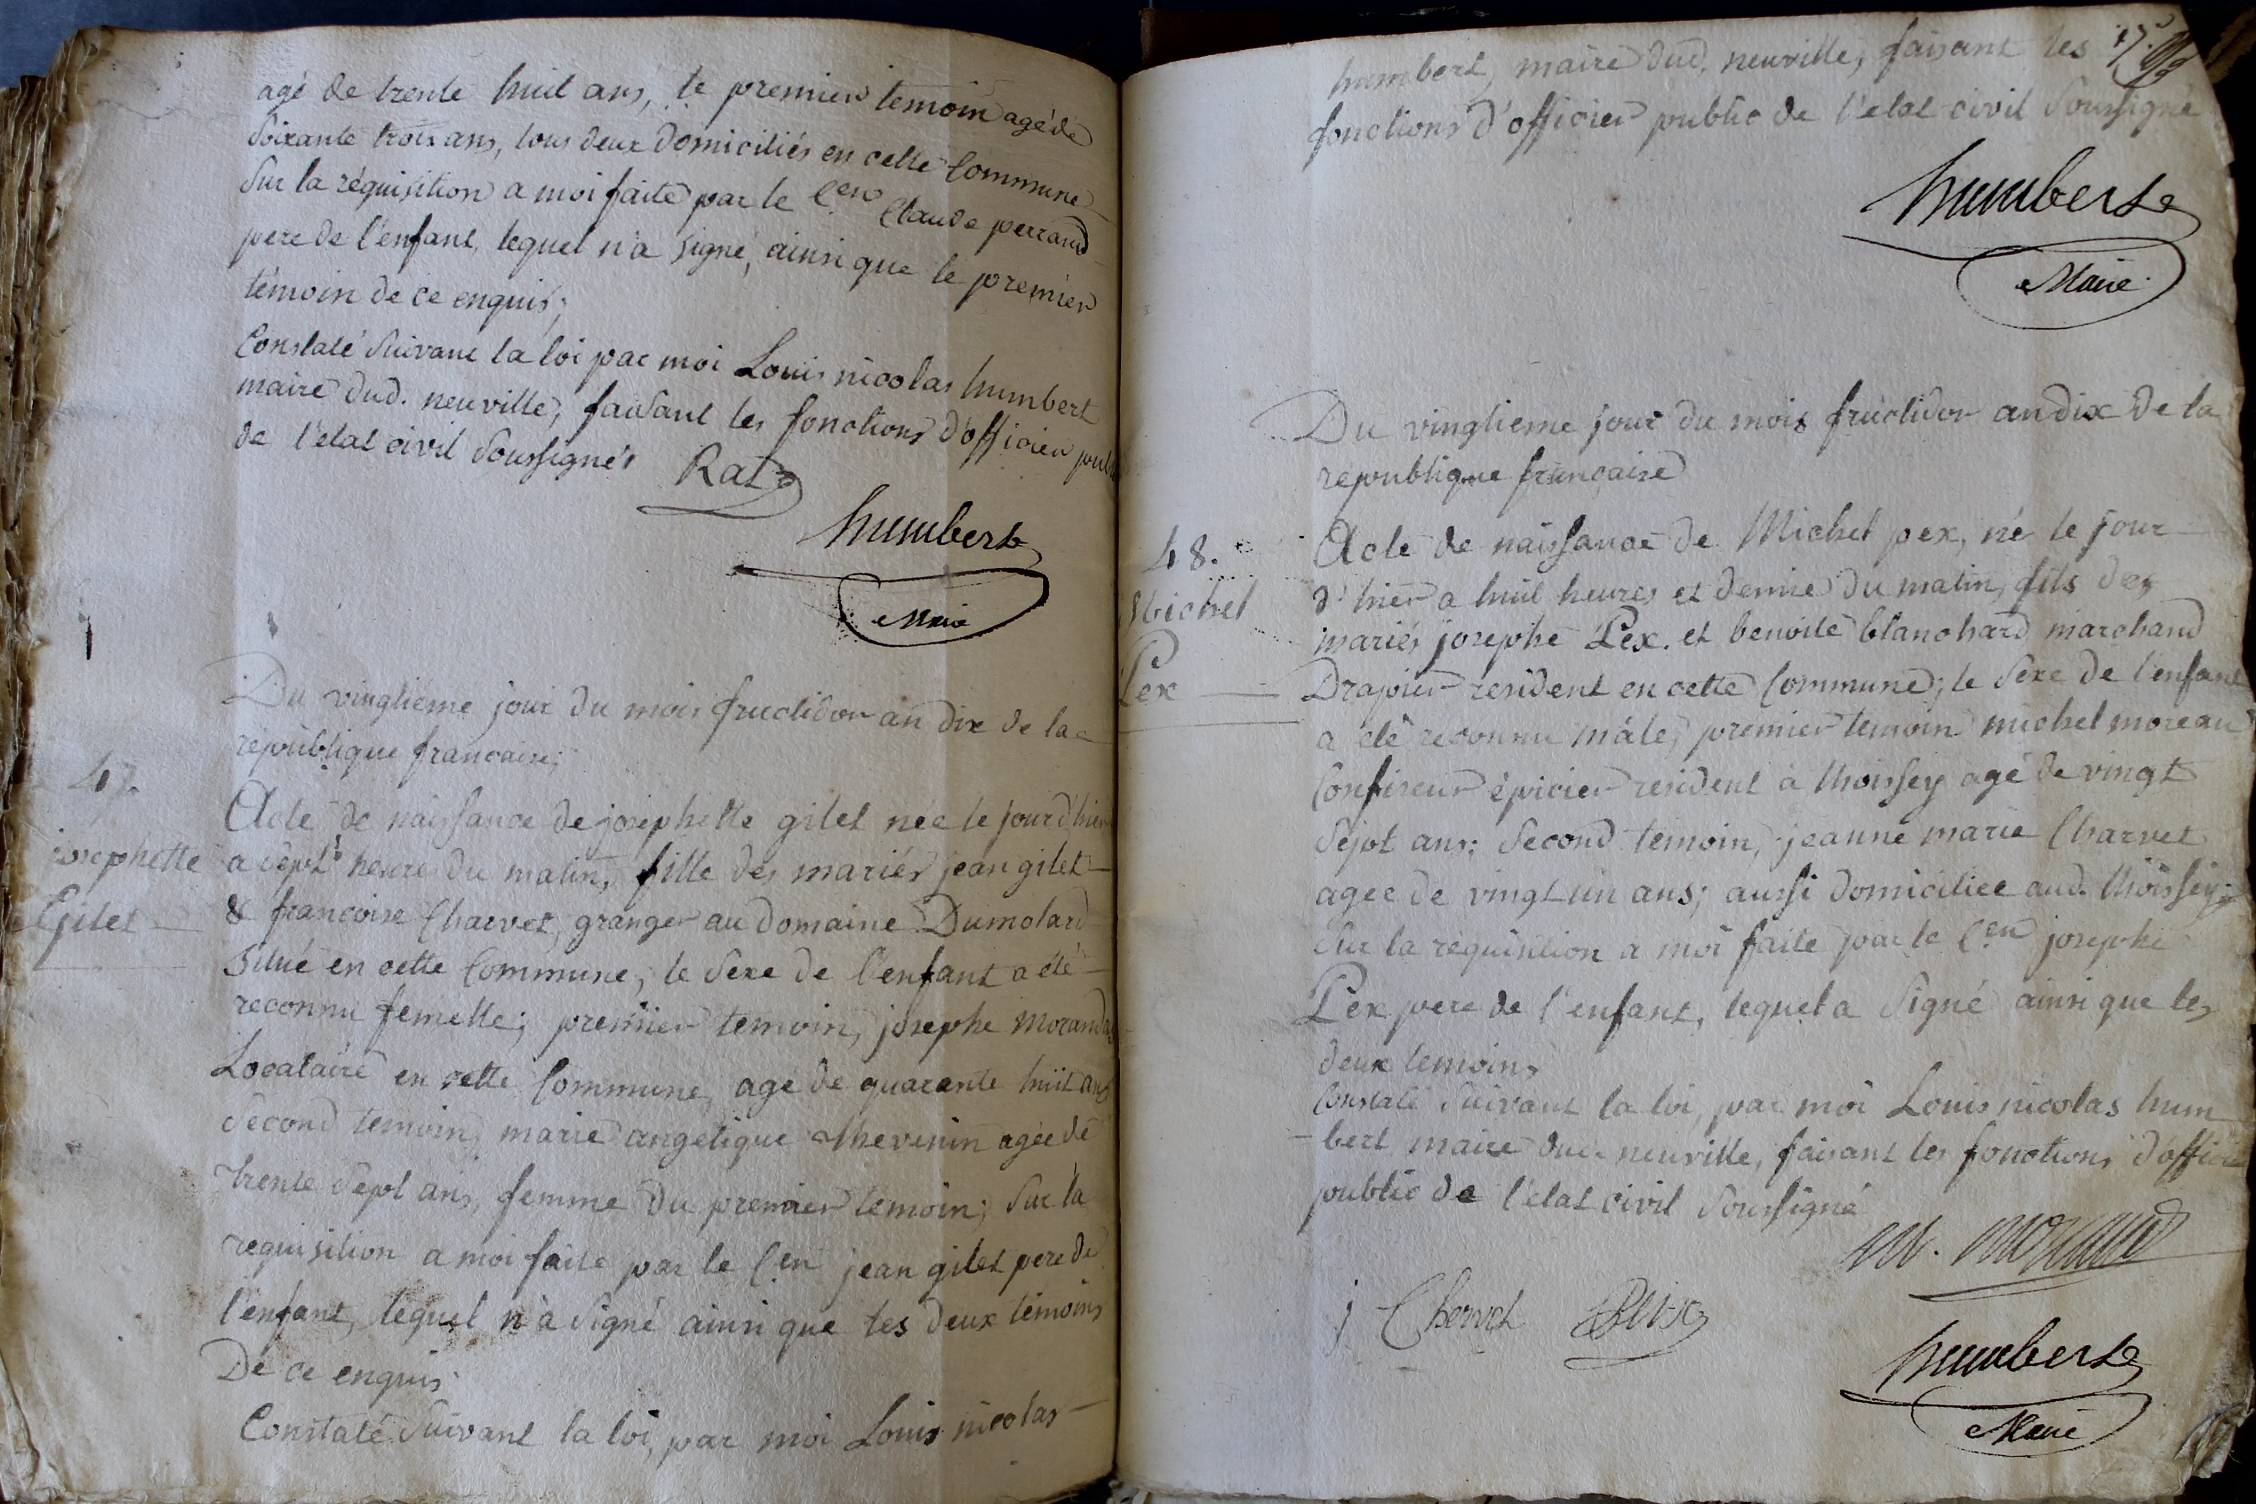 agé de trente huit ans, le premier temoin agé de
Soixante trois ans, tous deux domiciliés en cette Commune
Sur la réquisition a moi faite par le Cen Claude perraud
pere de l'enfant, lequel n'a signé, ainsi que le premier
témoin de ce enquis;
Constaté Suivant la loi par moi Louis nicolas humbert
maire dud. neuville, faisant les fonctions d'officier publ
de l'etat civil Soussignés Rat
humbert
Maire
Du vingtiéme jour du mois fructidor an dix de la
republique francaise;
47.
josephette
Gilet
Acte de naissance de josephette gilet née le jour d'hier
a sept heures du matin, fille des mariés jean gilet
& francoise Charvet, granger au domaine Dumolard
Situé en cette Commune, le Sexe de l'enfant a été
reconnu femelle; premier temoin, josephe morand
Localaire en cette Commune, agé de quarante huit ans
Second temoin, marie angelique thevenin agée de
trente Sept ans, femme du premier temoin; Sur la
requisition a moi faite par le Cen jean gilet pere de
l'enfant, lequel n'a Signé ainsi que les deux témoins
De ce enquis
Constaté Suivant la loi, par moi Louis nicolas
humbert, maire dud. neuville, faisant les
fonctions d'officier public de l'etat civil Soussigné
humbert
Maire
Du vingtieme jour du mois fructidor an dix de la
republique française
48.
Michel
Pex
Acte de naissance de Michel pex, né le jour
d'hier a huit heures et demie du matin, fils des
mariés josephe Pex. et benoite blanchard marchand
Drapier resident en cette Commune; le Sexe de l'enfant
a été reconnu mâle, premier temoin michel moreau
Confiseur épicier resident à thoissey agé de vingt
Sept ans; Second temoin, jeanne marie Charvet
agee de vingt un ans; aussi domiciliee aud. thoissey;
Sur la réquisition a moi faite par le Cen josephe
Pex pere de l'enfant, lequel a Signé ainsi que les
deux temoins
Constaté Suivant la loi, par moi Louis nicolas hum
-bert maire dud. neuville, faisant les fonctions d'officie
public de l'etat civil Soussigné
j Chervet
humbert
Maire